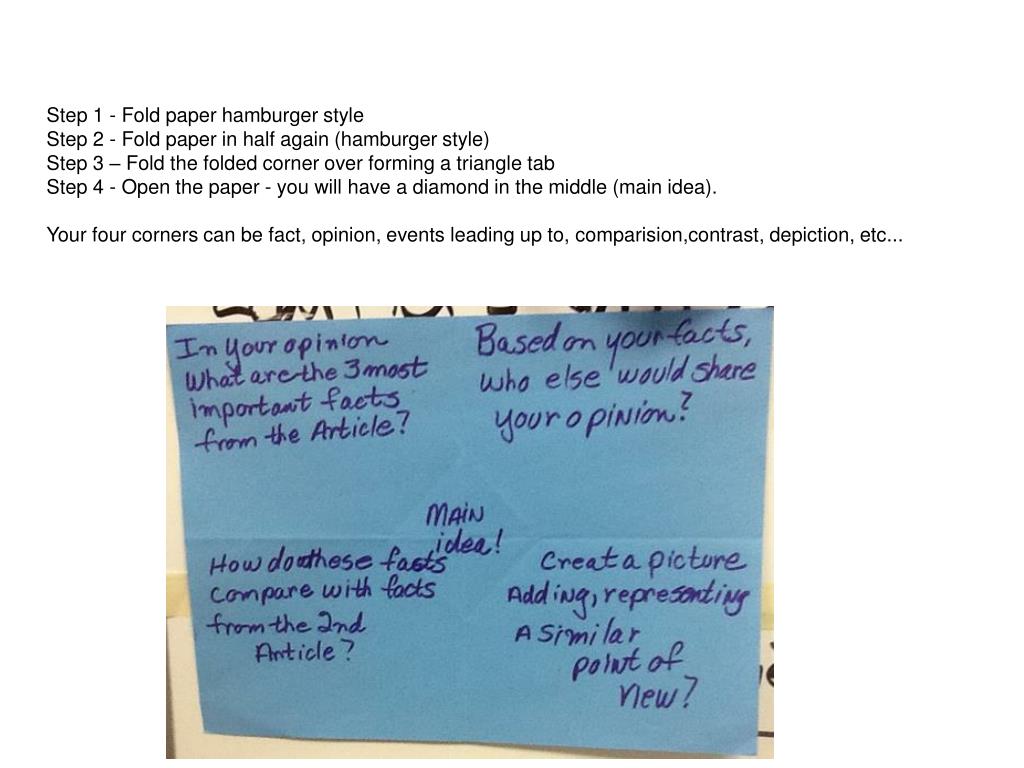 Step 1 - Fold paper hamburger style
Step 2 - Fold paper in half again (hamburger style)
Step 3 – Fold the folded corner over forming a triangle tab
Step 4 - Open the paper - you will have a diamond in the middle (main idea).
Your four corners can be fact, opinion, events leading up to, comparision,contrast, depiction, etc...
In your opinion
What are the 3 most
important facts
from the Article?
Based on your facts,
who else would share
your opinion?
MAIN
idea!
How do these facts
compare with facts
from the 2nd
Article?
Creat a picture
Adding, representing
A similar
point of
view?